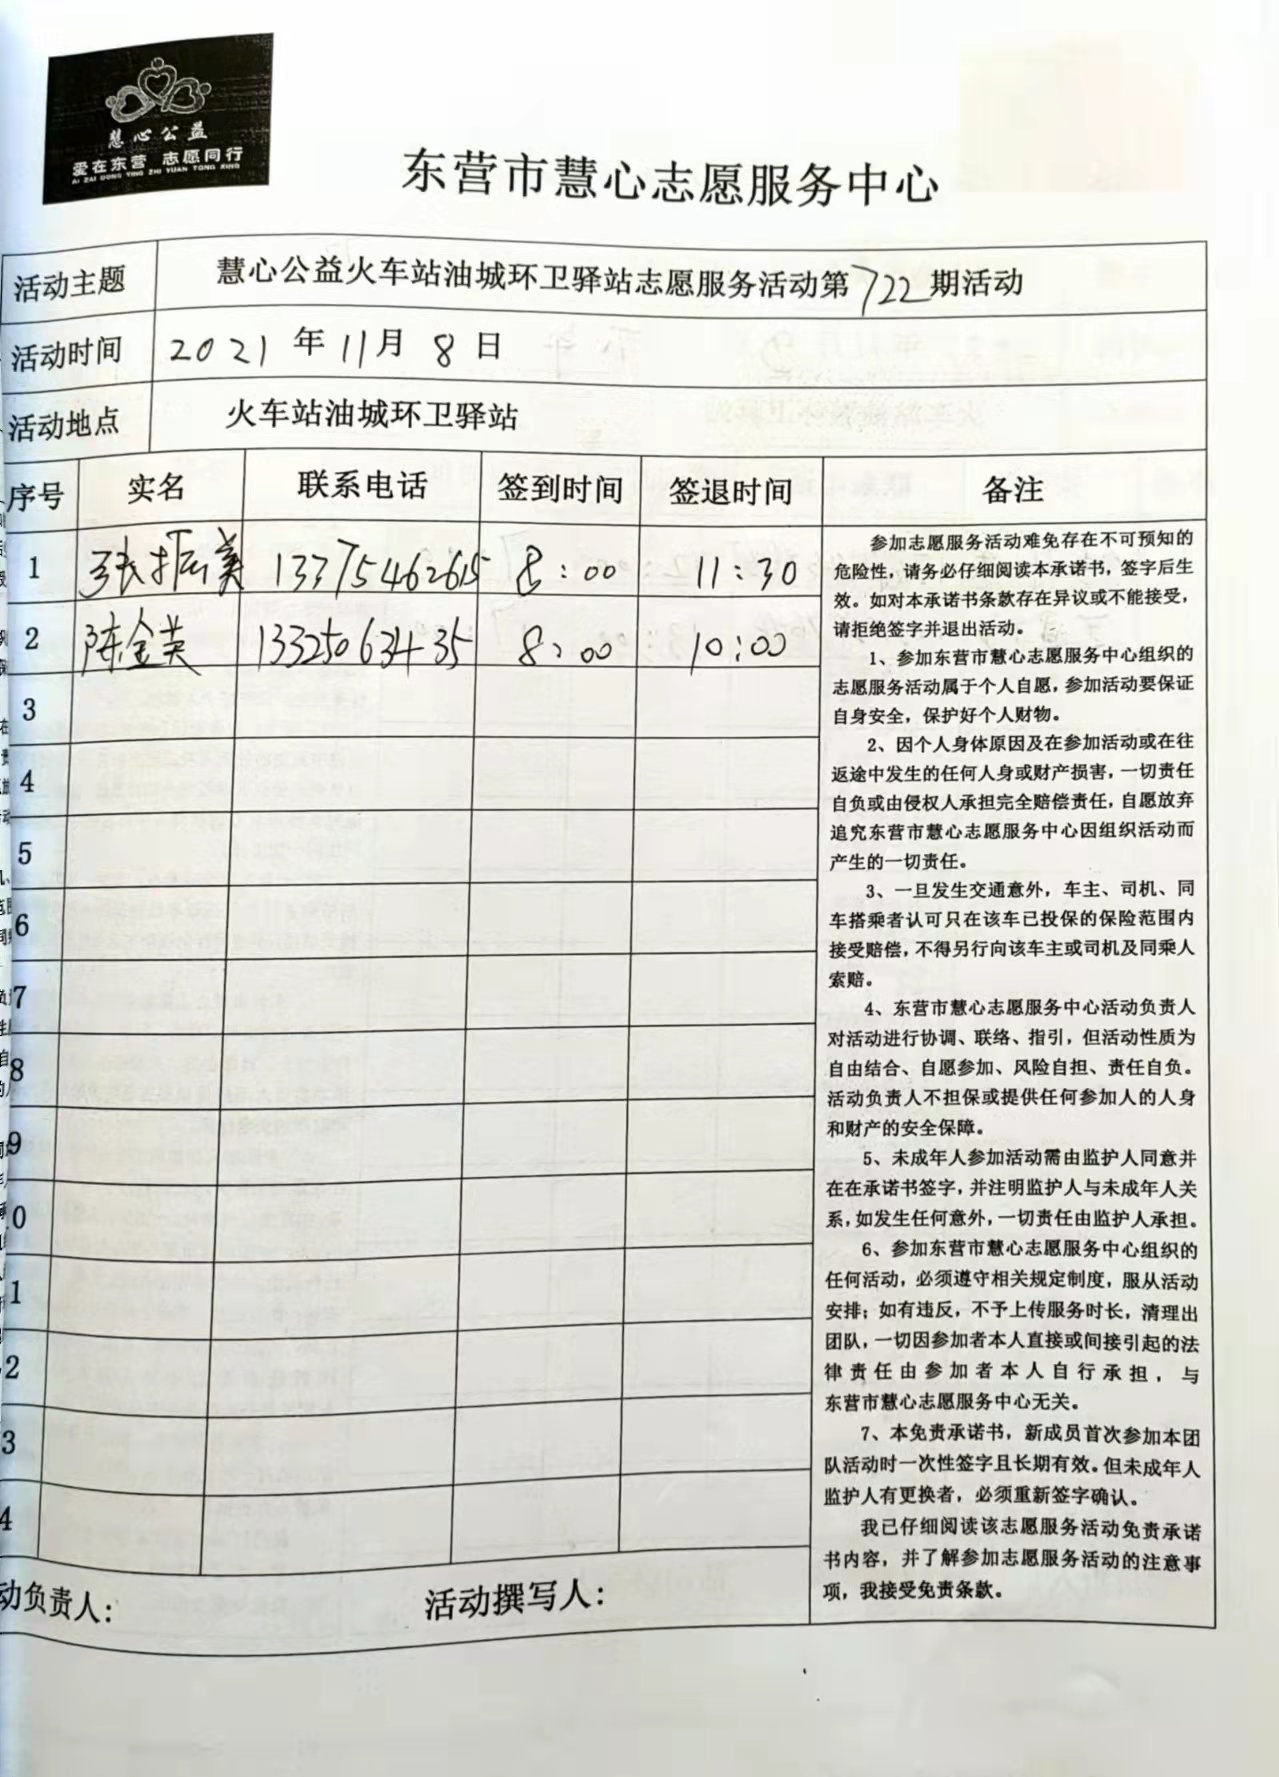 慧心公益
爱在东营 志愿同行
AI ZAI DONG YING ZHI YUAN TONG XING
东营市慧心志愿服务中心
活动主题 慧心公益火车站油城环卫驿站志愿服务活动第722期活动
活动时间 2021年11月8日
活动地点 火车站油城环卫驿站
序号 实名 联系电话 签到时间 签退时间 备注
1 张振美 13375462615 8:00 11:30
2 陈金英 13325063435 8:00 10:00
3
4
5
6
7
8
9
0
1
2
3
4
参加志愿服务活动难免存在不可预知的
危险性，请务必仔细阅读本承诺书，签字后生
效。如对本承诺书条款存在异议或不能接受，
请拒绝签字并退出活动。
1、参加东营市慧心志愿服务中心组织的
志愿服务活动属于个人自愿，参加活动要保证
自身安全，保护好个人财物。
2、因个人身体原因及在参加活动或在往
返途中发生的任何人身或财产损害，一切责任
自负或由侵权人承担完全赔偿责任，自愿放弃
追究东营市慧心志愿服务中心因组织活动而
产生的一切责任。
3、一旦发生交通意外，车主、司机、同
车搭乘者认可只在该车已投保的保险范围内
接受赔偿，不得另行向该车主或司机及同乘人
索赔。
4、东营市慧心志愿服务中心活动负责人
对活动进行协调、联络、指引，但活动性质为
自由结合、自愿参加、风险自担、责任自负。
活动负责人不担保或提供任何参加人的人身
和财产的安全保障。
5、未成年人参加活动需由监护人同意并
在在承诺书签字，并注明监护人与未成年人关
系，如发生任何意外，一切责任由监护人承担。
6、参加东营市慧心志愿服务中心组织的
任何活动，必须遵守相关规定制度，服从活动
安排；如有违反，不予上传服务时长，清理出
团队，一切因参加者本人直接或间接引起的法
律责任由参加者本人自行承担，与
东营市慧心志愿服务中心无关。
7、本免责承诺书，新成员首次参加本团
队活动时一次性签字且长期有效。但未成年人
监护人有更换者，必须重新签字确认。
我已仔细阅读该志愿服务活动免责承诺
书内容，并了解参加志愿服务活动的注意事
项，我接受免责条款。
动负责人： 活动撰写人：